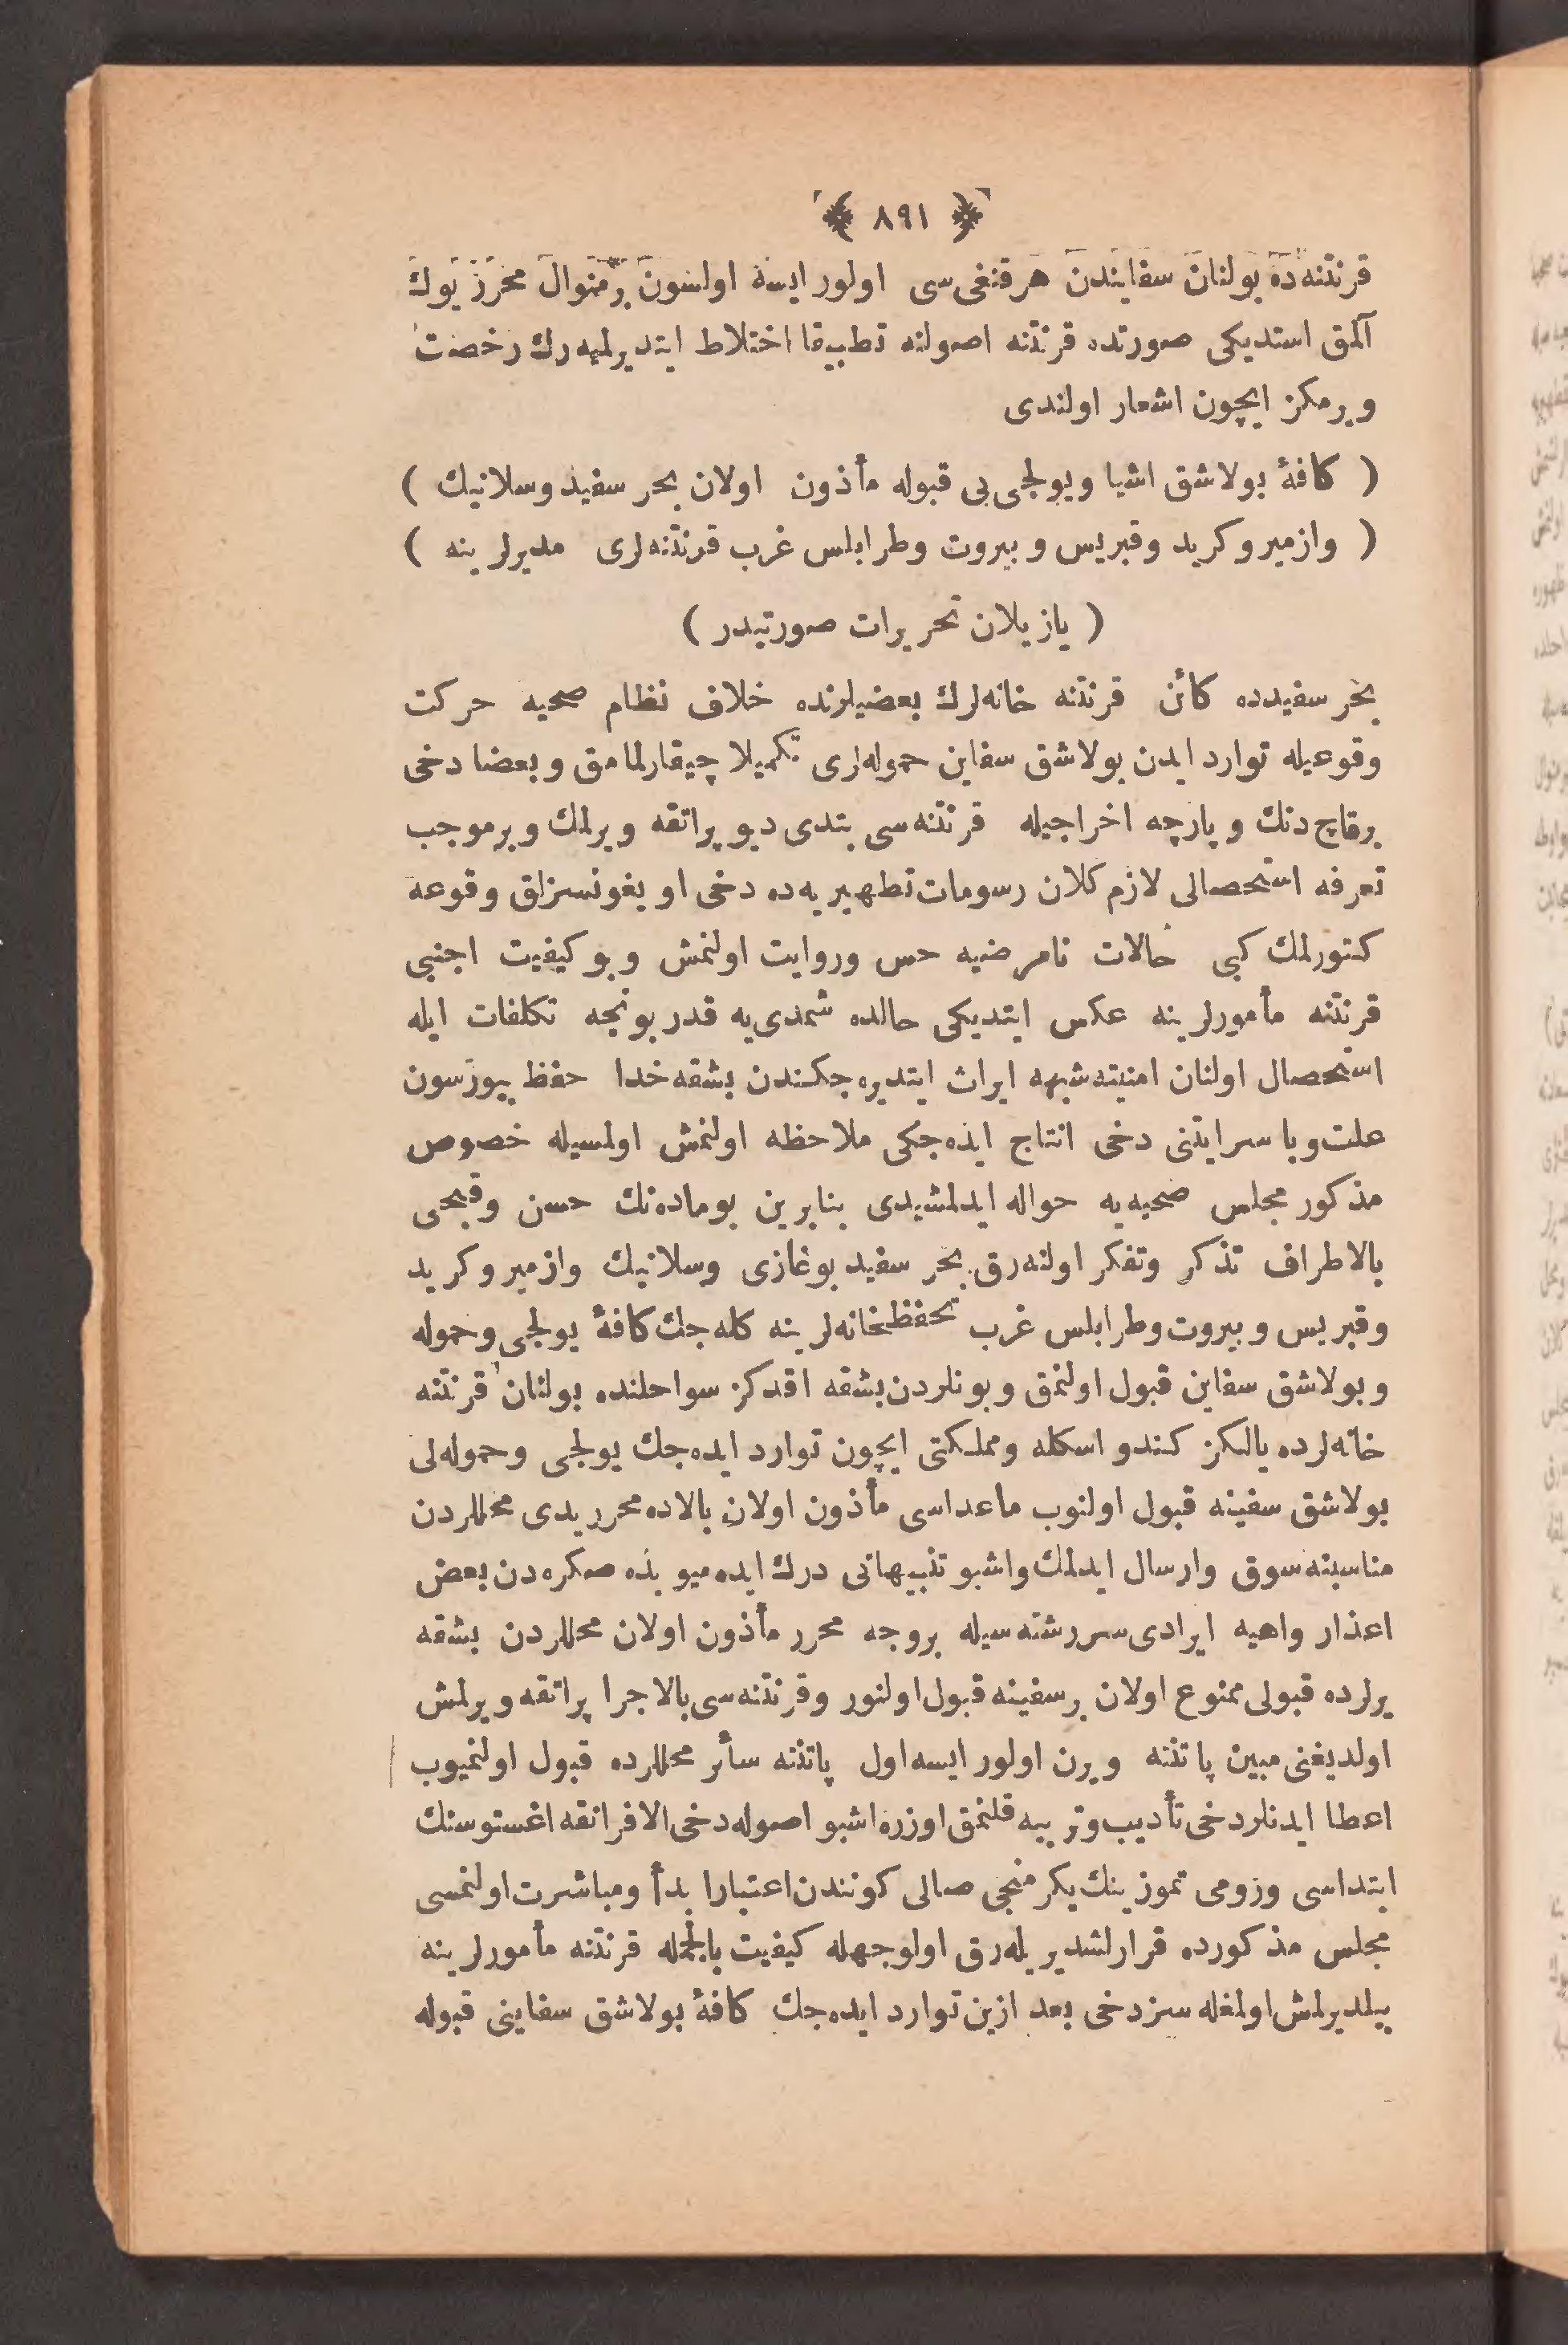 ﴿ ٨٩١ ﴾
قرنتنه‌ده بولنان سفایندن هر قنغی‌سی اولور ایسه اولسون برمنوال محرر یوك
آلمق استدیكی صورتده قرنتنه اصولنه تطبیقا اختلاط ایتدیرلمیه‌رك رخصت
ویرمكز ایچون اشعار اولندی
( كافۀ بولاشق اشیا ویولجی‌یی قبوله مأذون اولان بحر سفید وسلانیك )
( وازمیر وكرید وقبریس وبیروت وطرابلس غرب قرنتنه‌لری مدیرلرینه )
( یازیلان تحریرات صورتیدر )
بحر سفیدده كائن قرنتنه خانه‌لرك بعضیلرنده خلاف نظام صحیه حركت
وقوعیله توارد ایدن بولاشق سفاین حموله‌لری تكمیلا چیقارلمامق وبعضا دخی
برقاچ دنك و پارچه اخراجیله قرنتنه‌سی بتدی دیو پراتقه ویرلمك وبرموجب
تعرفه استحصالی لازم كلان رسومات تطهیریه‌ده دخی اویغونسزلق وقوعه
كتورلمك كبی حالات نامرضیه حس وروایت اولنمش وبو كیفیت اجنبی
قرنتنه مأمورلرینه عكس ایتدیكی حالده شمدی‌یه قدر بونجه تكلفات ایله
استحصال اولنان امنیته شبهه ایراث ایتدیره‌جكندن بشقه خدا حفظ بیورسون
علت وبا سرایتنی دخی انتاج ایده‌جكی ملاحظه اولنمش اولمسیله خصوص
مذكور مجلس صحیه‌یه حواله ایدلمشیدی بنابرین بوماده‌نك حسن وقبحی
بالاطراف تذكر وتفكر اولنه‌رق بحر سفید بوغازی وسلانیك وازمیر وكرید
وقبریس وبیروت وطرابلس غرب تحفظخانه‌لرینه كله‌جك كافۀ یولجی وحموله
وبولاشق سفاین قبول اولنمق وبونلردن بشقه اقدكز سواحلنده بولنان قرنتنه
خانه‌لرده یالكز كندو اسكله ومملكتی ایچون توارد ایده‌جك یولجی وحموله‌لی
بولاشق سفینه قبول اولنوب ماعداسی مأذون اولان بالاده محرر یدی محللردن
مناسبنه سوق وارسال ایدلمك واشبو تنبیهاتی درك ایده‌میوبده صكره‌دن بعض
اعذار واهیه ایرادی سررشته‌سیله بروجه محرر مأذون اولان محللردن بشقه
یرلرده قبولی ممنوع اولان برسفینه قبول اولنور وقرنتنه‌سی بالاجرا پراتقه ویرلمش
اولدیغنی مبین پاتنته ویرن اولور ایسه اول پاتنته سائر محللرده قبول اولنمیوب
اعطا ایدنلر دخی تأدیب وتربیه قلنمق اوزره اشبو اصوله دخی الافرانقه اغستوسنك
ابتداسی ورومی تموزینك یكرمنجی صالی كونندن اعتبارا بدأ ومباشرت اولنمسی
مجلس مذكورده قرارلشدیریله‌رق اولوجهله كیفیت بالجمله قرنتنه مأمورلرینه
بیلدیرلمش اولمغله سزدخی بعد ازین توارد ایده‌جك كافۀ بولاشق سفاینی قبوله